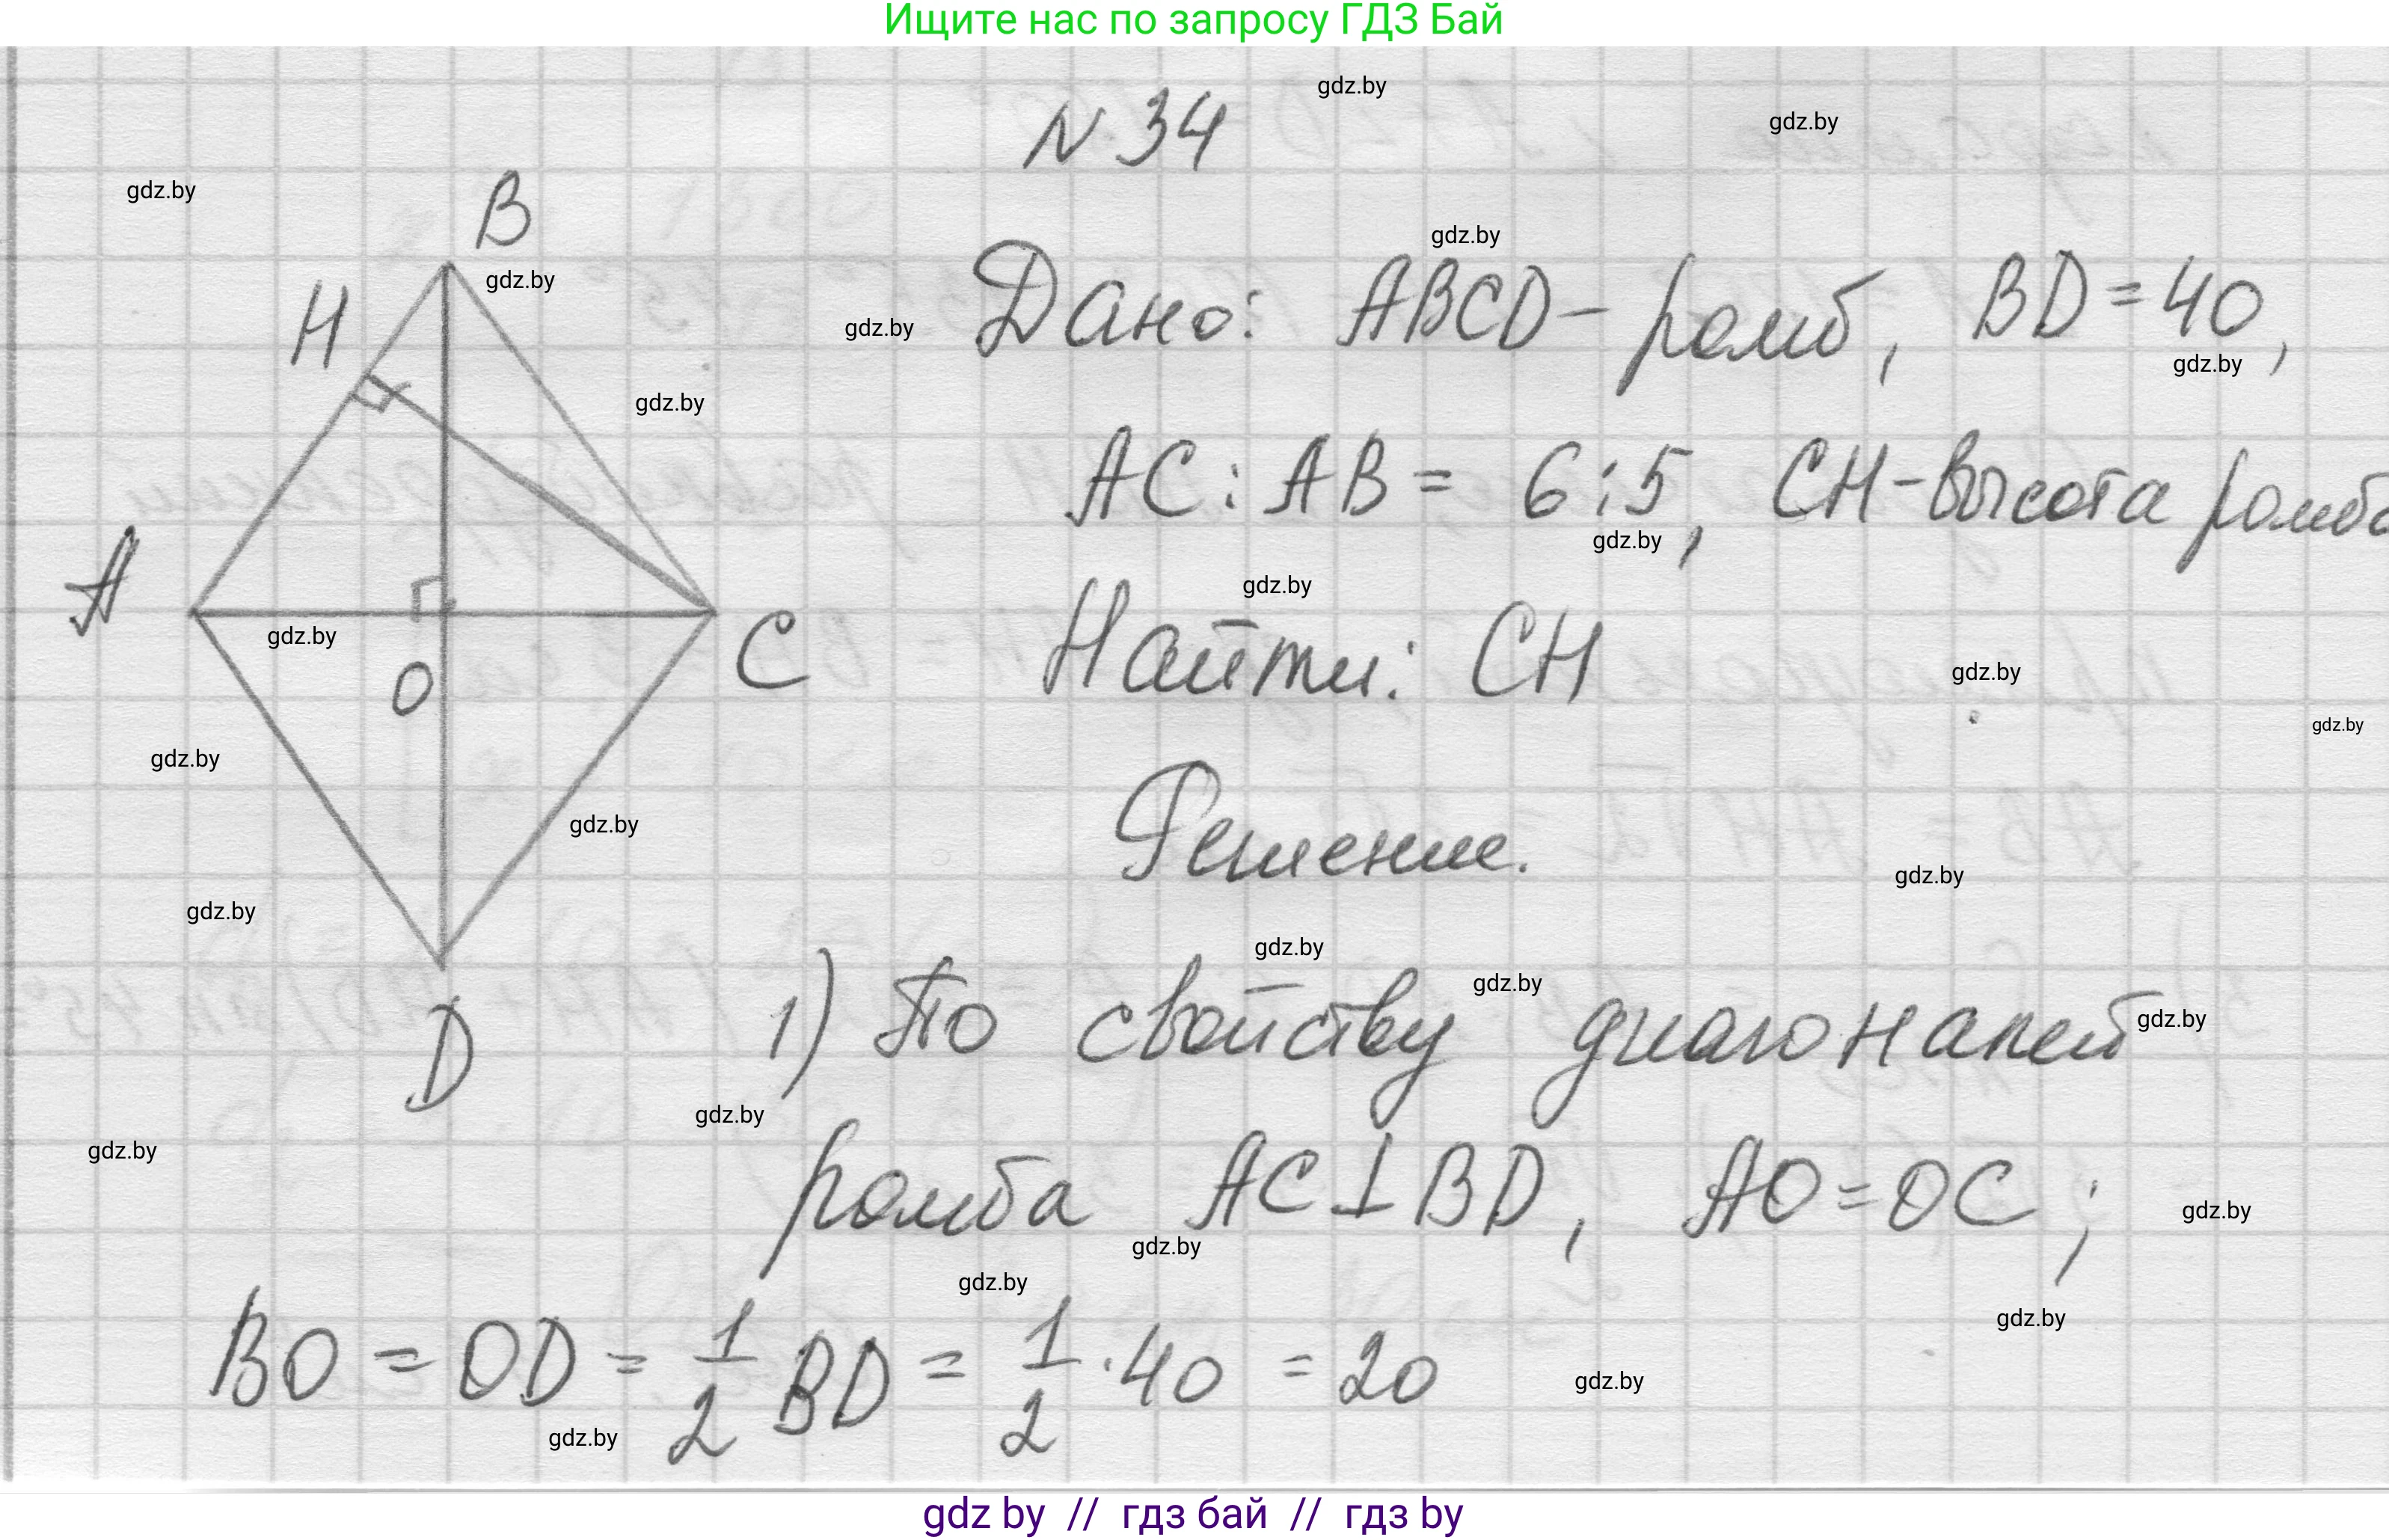 Ищите нас по запросу ГДЗ Бай
N 34
gdz.by
gdz.by
gdz.by
B
gdz.by
gdz.by
H
gdz.by
Дано: ABCD - ромб, BD = 40,
gdz.by
gdz.by
AC : AB = 6 : 5, CH - высота ромба
gdz.by
A
gdz.by
Найти: CH
gdz.by
C
O
gdz.by
gdz.by
gdz.by
Решение.
gdz.by
gdz.by
gdz.by
gdz.by
gdz.by
D
1) По свойству диагоналей
gdz.by
gdz.by
gdz.by
ромба AC ⊥ BD, AO = OC;
gdz.by
gdz.by
gdz.by
gdz.by
BO = OD = 1/2 BD = 1/2 · 40 = 20
gdz.by
gdz.by
gdz by // гдз бай // гдз by